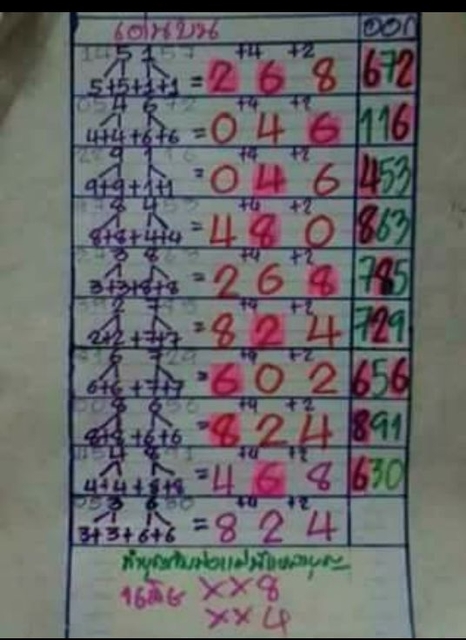 เด่นบน ออก
5 1
+4 +2
5+5+1+1 = 2 6 8 672
4 6
+4 +2
4+4+6+6 = 0 4 6 116
9 1
+4 +2
9+9+1+1 = 0 4 6 453
8 4
+4 +2
8+8+4+4 = 4 8 0 863
3 8
+4 +2
3+3+8+8 = 2 6 8 785
2 7
+4 +2
2+2+7+7 = 8 2 4 729
6 7
+4 +2
6+6+7+7 = 6 0 2 656
8 6
+4 +2
8+8+6+6 = 8 2 4 891
4 8
+4 +2
4+4+8+8 = 4 6 8 630
3 6
+4 +2
3+3+6+6 = 8 2 4
XX8
XX4